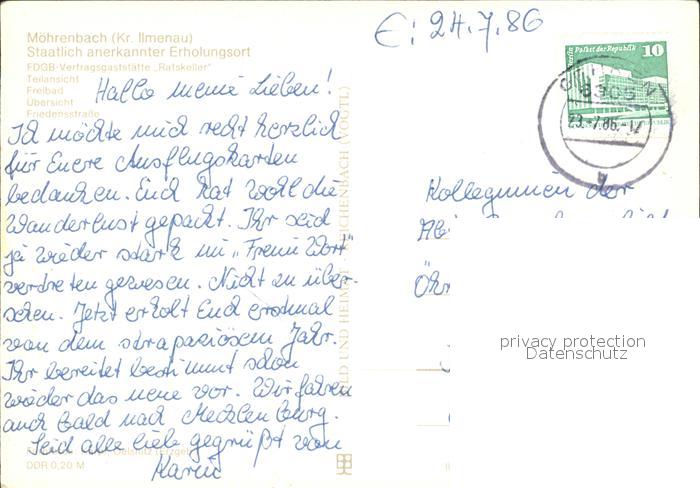 Möhrenbach (Kr. Ilmenau)
Staatlich anerkannter Erholungsort
FDGB-Vertragsgaststätte „Ratskeller“
Teilansicht
Freibad
Übersicht
Friedensstraße
E: 24.7.86
Hallo meine Lieben!
Ich möchte mich recht herzlich
für Eure Ausflugskarten
bedanken. Euch hat wohl die
Wanderlust gepackt. Ihr seid
ja wieder stark im „Freien Wort“
vertreten gewesen. Nicht zu über-
sehen. Jetzt erholt Euch erstmal
von dem strapaziösem Jahr.
Ihr bereitet bestimmt schon
wieder das neue vor. Wir fahren
auch bald nach Mecklenburg.
Seid alle lieb gegrüßt von
Karin
DDR 0,20 M
BILD UND HEIMAT REICHENBACH (VOGTL)
Palast der Republik 10
6305
23.-7.86.-17
Kolleginnen der
privacy protection
Datenschutz